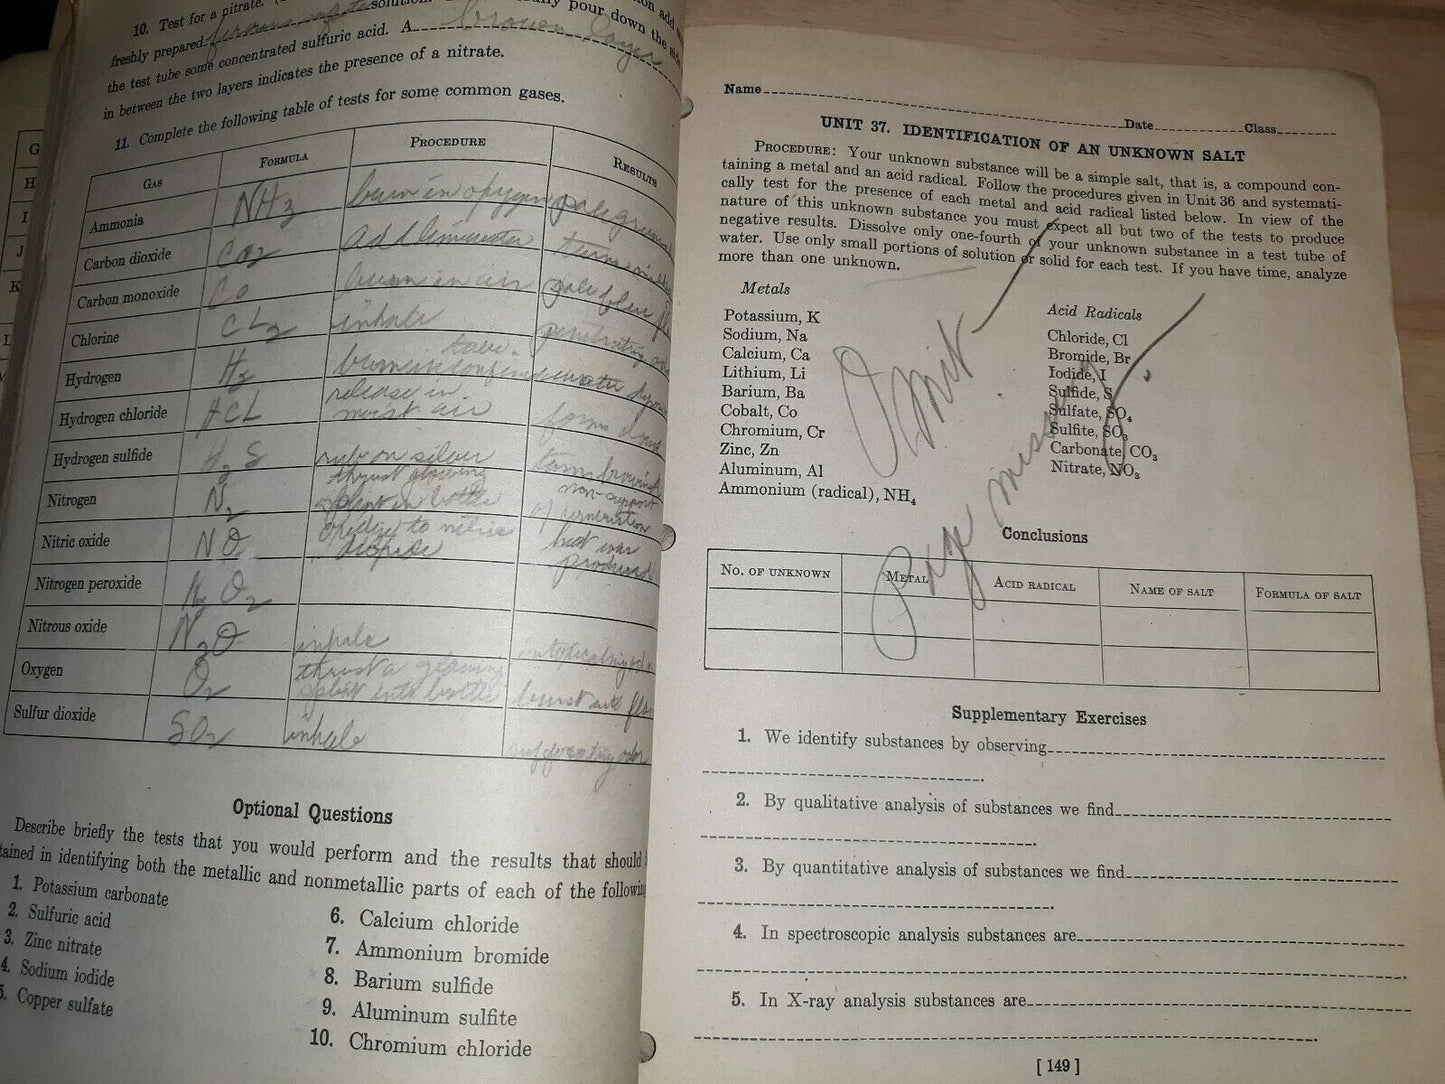 10. Test for a nitrate.
freshly prepared ferrous sulfate solution. pour down the side
the test tube some concentrated sulfuric acid. A brown layer
in between the two layers indicates the presence of a nitrate.
11. Complete the following table of tests for some common gases.
GAS FORMULA PROCEDURE RESULTS
Ammonia NH3 burn in oxygen pale green
Carbon dioxide CO2 add limewater turns
Carbon monoxide CO burn in air pale blue
Chlorine CL2 inhale penetrating
Hydrogen H2 burn water
Hydrogen chloride HCL release in
moist air form
Hydrogen sulfide H2S rub on silver
Nitrogen N2 thrust glowing
splint in bottle non-support
of combustion
Nitric oxide NO oxidize to nitric
dioxide heat was
produced
Nitrogen peroxide N2O2
Nitrous oxide N2O inhale
Oxygen O2 thrust a glowing
splint into bottle burst into
Sulfur dioxide SO2 inhale suffocating odor
Optional Questions
Describe briefly the tests that you would perform and the results that should
tained in identifying both the metallic and nonmetallic parts of each of the following
1. Potassium carbonate
2. Sulfuric acid
3. Zinc nitrate
4. Sodium iodide
5. Copper sulfate
6. Calcium chloride
7. Ammonium bromide
8. Barium sulfide
9. Aluminum sulfite
10. Chromium chloride
Name Date Class
UNIT 37. IDENTIFICATION OF AN UNKNOWN SALT
PROCEDURE: Your unknown substance will be a simple salt, that is, a compound con-
taining a metal and an acid radical. Follow the procedures given in Unit 36 and systemati-
cally test for the presence of each metal and acid radical listed below. In view of the
nature of this unknown substance you must expect all but two of the tests to produce
negative results. Dissolve only one-fourth of your unknown substance in a test tube of
water. Use only small portions of solution or solid for each test. If you have time, analyze
more than one unknown.
Metals
Potassium, K
Sodium, Na
Calcium, Ca
Lithium, Li
Barium, Ba
Cobalt, Co
Chromium, Cr
Zinc, Zn
Aluminum, Al
Ammonium (radical), NH4
Acid Radicals
Chloride, Cl
Bromide, Br
Iodide, I
Sulfide, S
Sulfate, SO4
Sulfite, SO3
Carbonate, CO3
Nitrate, NO3
Omit
Page missing
Conclusions
NO. OF UNKNOWN METAL ACID RADICAL NAME OF SALT FORMULA OF SALT
Supplementary Exercises
1. We identify substances by observing
2. By qualitative analysis of substances we find
3. By quantitative analysis of substances we find
4. In spectroscopic analysis substances are
5. In X-ray analysis substances are
[ 149 ]